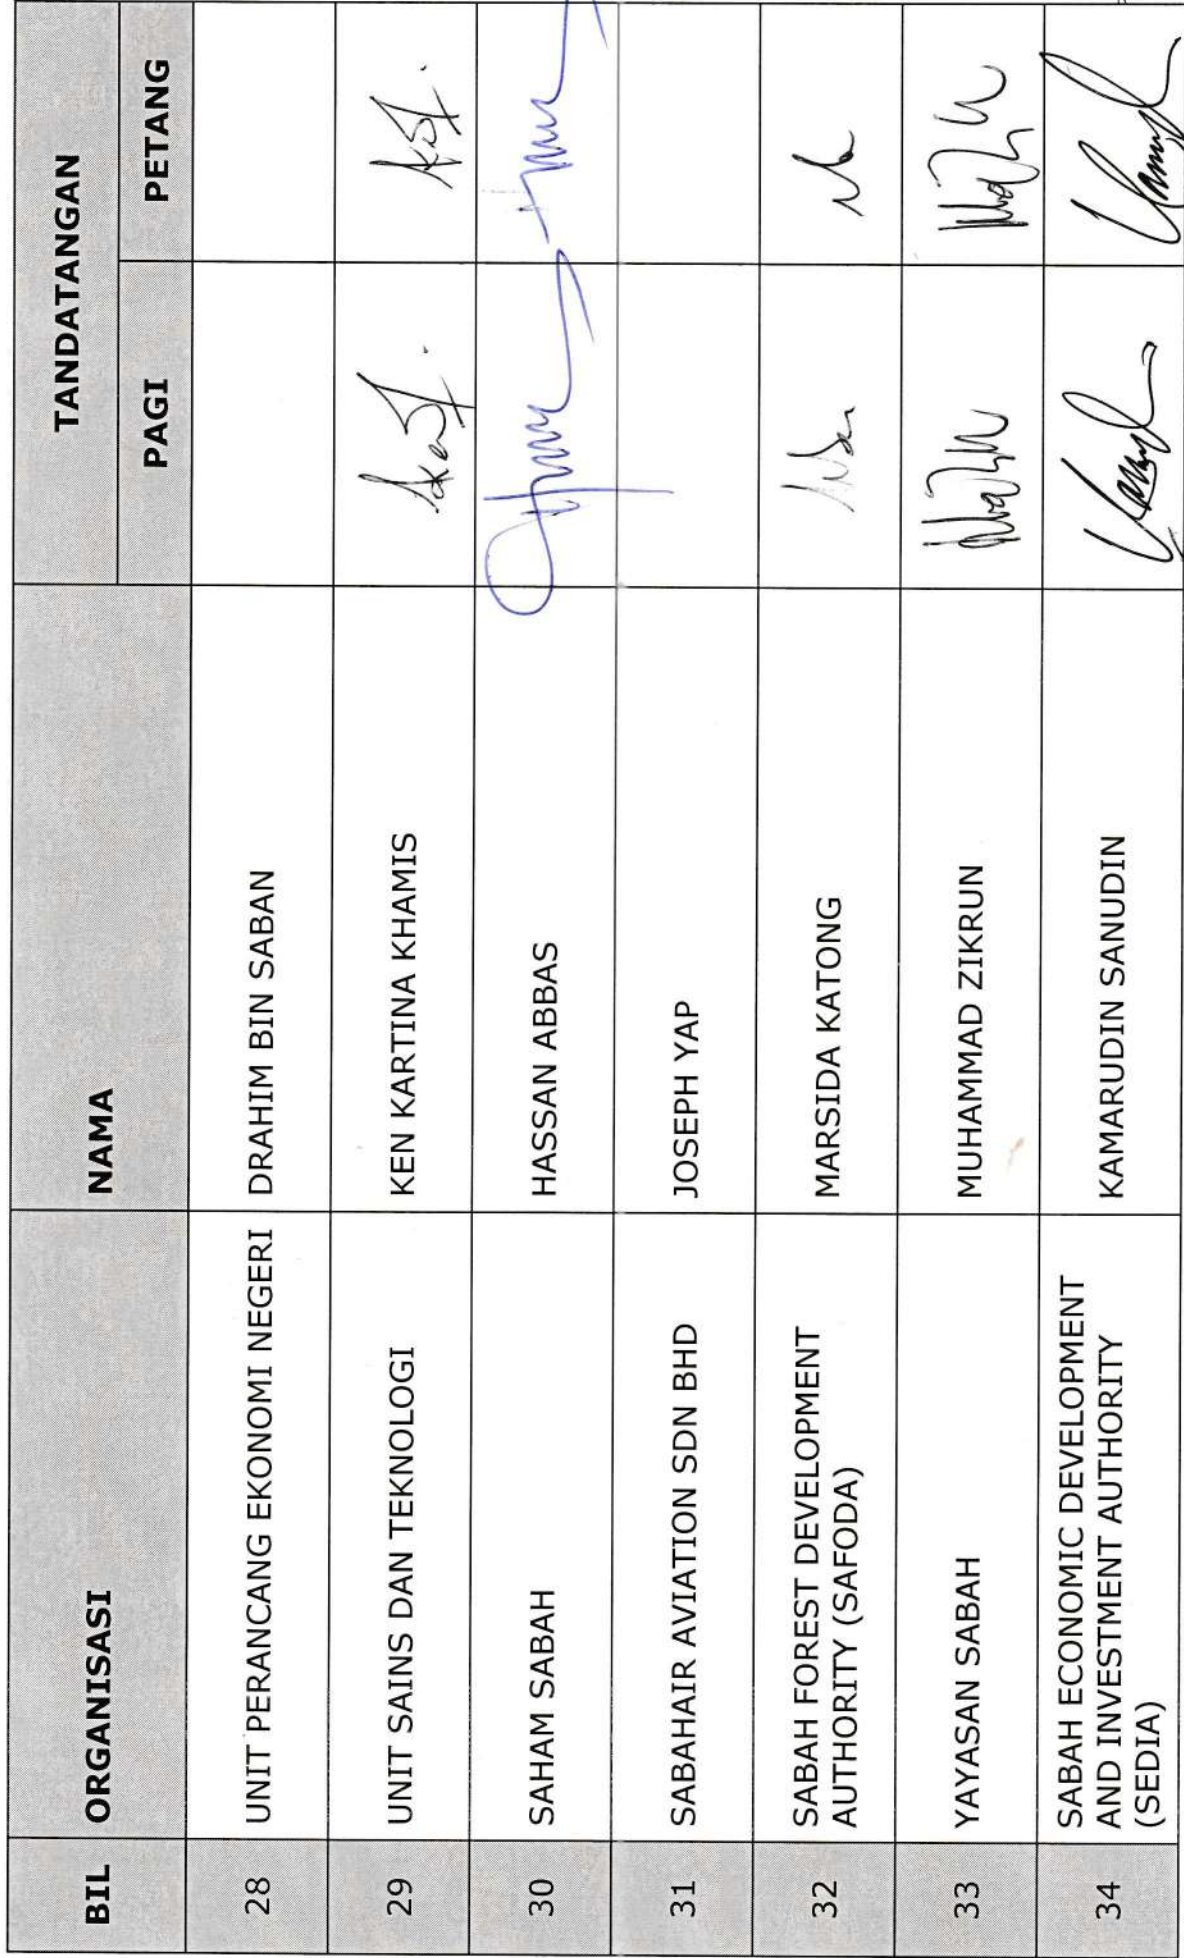 BIL ORGANISASI NAMA TANDATANGAN
PAGI PETANG
28 UNIT PERANCANG EKONOMI NEGERI DRAHIM BIN SABAN
29 UNIT SAINS DAN TEKNOLOGI KEN KARTINA KHAMIS
30 SAHAM SABAH HASSAN ABBAS
31 SABAHAIR AVIATION SDN BHD JOSEPH YAP
32 SABAH FOREST DEVELOPMENT MARSIDA KATONG
AUTHORITY (SAFODA)
33 YAYASAN SABAH MUHAMMAD ZIKRUN
34 SABAH ECONOMIC DEVELOPMENT KAMARUDIN SANUDIN
AND INVESTMENT AUTHORITY
(SEDIA)